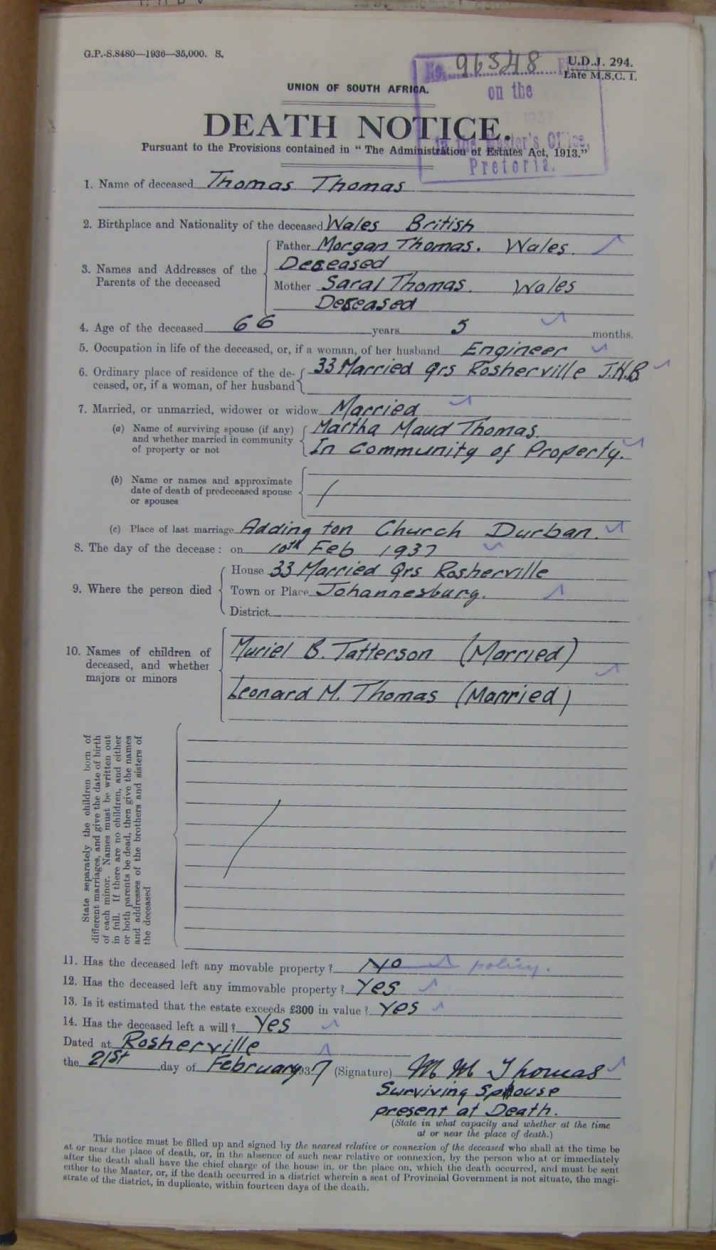 G.P.-S.8480—1936—35,000. S.
No. 96548
U.D.J. 294.
Late M.S.C. 1.
UNION OF SOUTH AFRICA.
on the
DEATH NOTICE.
in the Master's Office,
Pursuant to the Provisions contained in "The Administration of Estates Act, 1913."
Pretoria.
1. Name of deceased Thomas Thomas
2. Birthplace and Nationality of the deceased Wales British
3. Names and Addresses of the Parents of the deceased
Father Morgan Thomas. Wales
Deceased
Mother Saral Thomas. Wales
Deceased
4. Age of the deceased 66 years 5 months.
5. Occupation in life of the deceased, or, if a woman, of her husband Engineer
6. Ordinary place of residence of the de-
ceased, or, if a woman, of her husband
33 Married Qrs Rosherville J.H.B
7. Married, or unmarried, widower or widow Married
(a) Name of surviving spouse (if any)
and whether married in community
of property or not
Martha Maud Thomas
In Community of Property.
(b) Name or names and approximate
date of death of predeceased spouse
or spouses
/
(c) Place of last marriage Addington Church Durban.
8. The day of the decease: on 10th Feb 1937
9. Where the person died
House 33 Married Qrs Rosherville
Town or Place Johannesburg.
District
10. Names of children of
deceased, and whether
majors or minors
Muriel B. Tatterson (Married)
Leonard M. Thomas (Married)
State separately the children born of
different marriages, and give the date of birth
of each minor. Names must be written out
in full. If there are no children, and either
or both parents be dead, then give the names
and addresses of the brothers and sisters of
the deceased
/
11. Has the deceased left any movable property? No policy.
12. Has the deceased left any immovable property? Yes
13. Is it estimated that the estate exceeds £300 in value? Yes
14. Has the deceased left a will? Yes
Dated at Rosherville
the 21st day of February 1937 (Signature) M M Thomas
Surviving Spouse
present at Death.
(State in what capacity and whether at the time
at or near the place of death.)
This notice must be filled up and signed by the nearest relative or connexion of the deceased who shall at the time be
at or near the place of death, or, in the absence of such near relative or connexion, by the person who at or immediately
after the death shall have the chief charge of the house in, or the place on, which the death occurred, and must be sent
either to the Master, or, if the death occurred in a district wherein a seat of Provincial Government is not situate, the magi-
strate of the district, in duplicate, within fourteen days of the death.